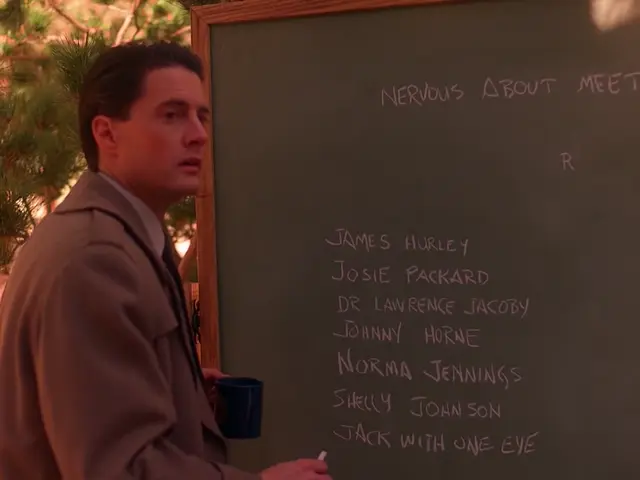 NERVOUS ABOUT MEET
R
JAMES HURLEY
JOSIE PACKARD
DR LAWRENCE JACOBY
JOHNNY HORNE
NORMA JENNINGS
SHELLY JOHNSON
JACK WITH ONE EYE